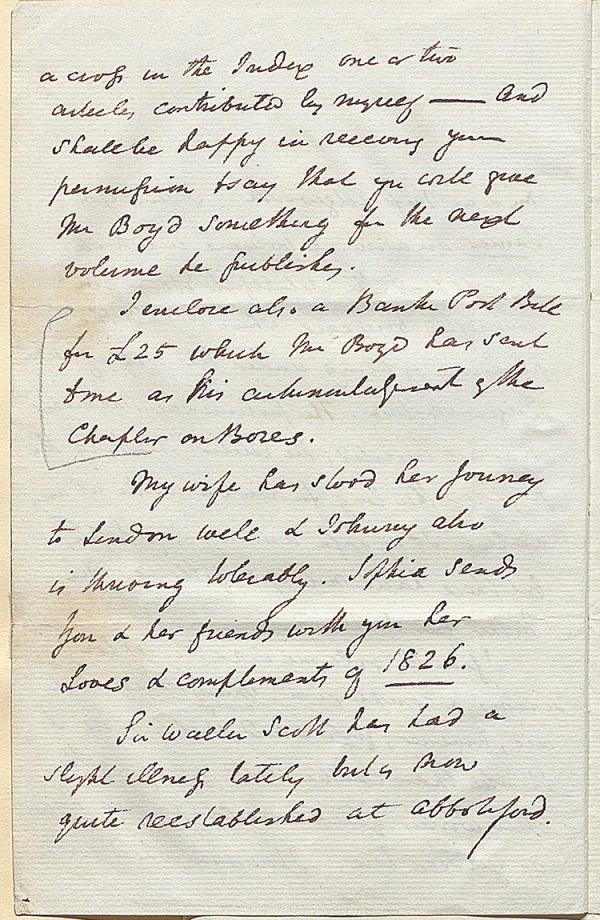 a cross in the Index one or two
articles contributed by myself — And
shall be happy in receiving your
permission to say that you will give
Mr Boyd something for the next
volume he publishes.
I enclose also a Bank Post Bill
for £25 which Mr Boyd has sent
to me as his acknowledgment of the
Chapter on Bores.
My wife has stood her Journey
to London well & Johnny also
is thriving tolerably. Sophia sends
you & her friends with you her
Loves & compliments of 1826.
Sir Walter Scott has had a
slight illness lately but is now
quite reestablished at Abbotsford.